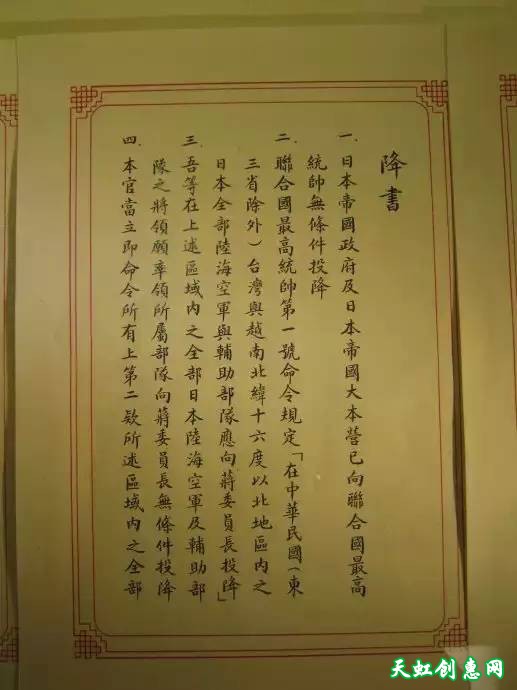 降書
一、日本帝國政府及日本帝國大本營已向聯合國最高
統帥無條件投降
二、聯合國最高統帥第一號命令規定「在中華民國(東
三省除外)台灣與越南北緯十六度以北地區內之
日本全部陸海空軍與輔助部隊應向蔣委員長投降」
三、吾等在上述區域內之全部日本陸海空軍及輔助部
隊之將領願率領所屬部隊向蔣委員長無條件投降
四、本官當立即命令所有上第二欵所述區域內之全部
天虹创惠网